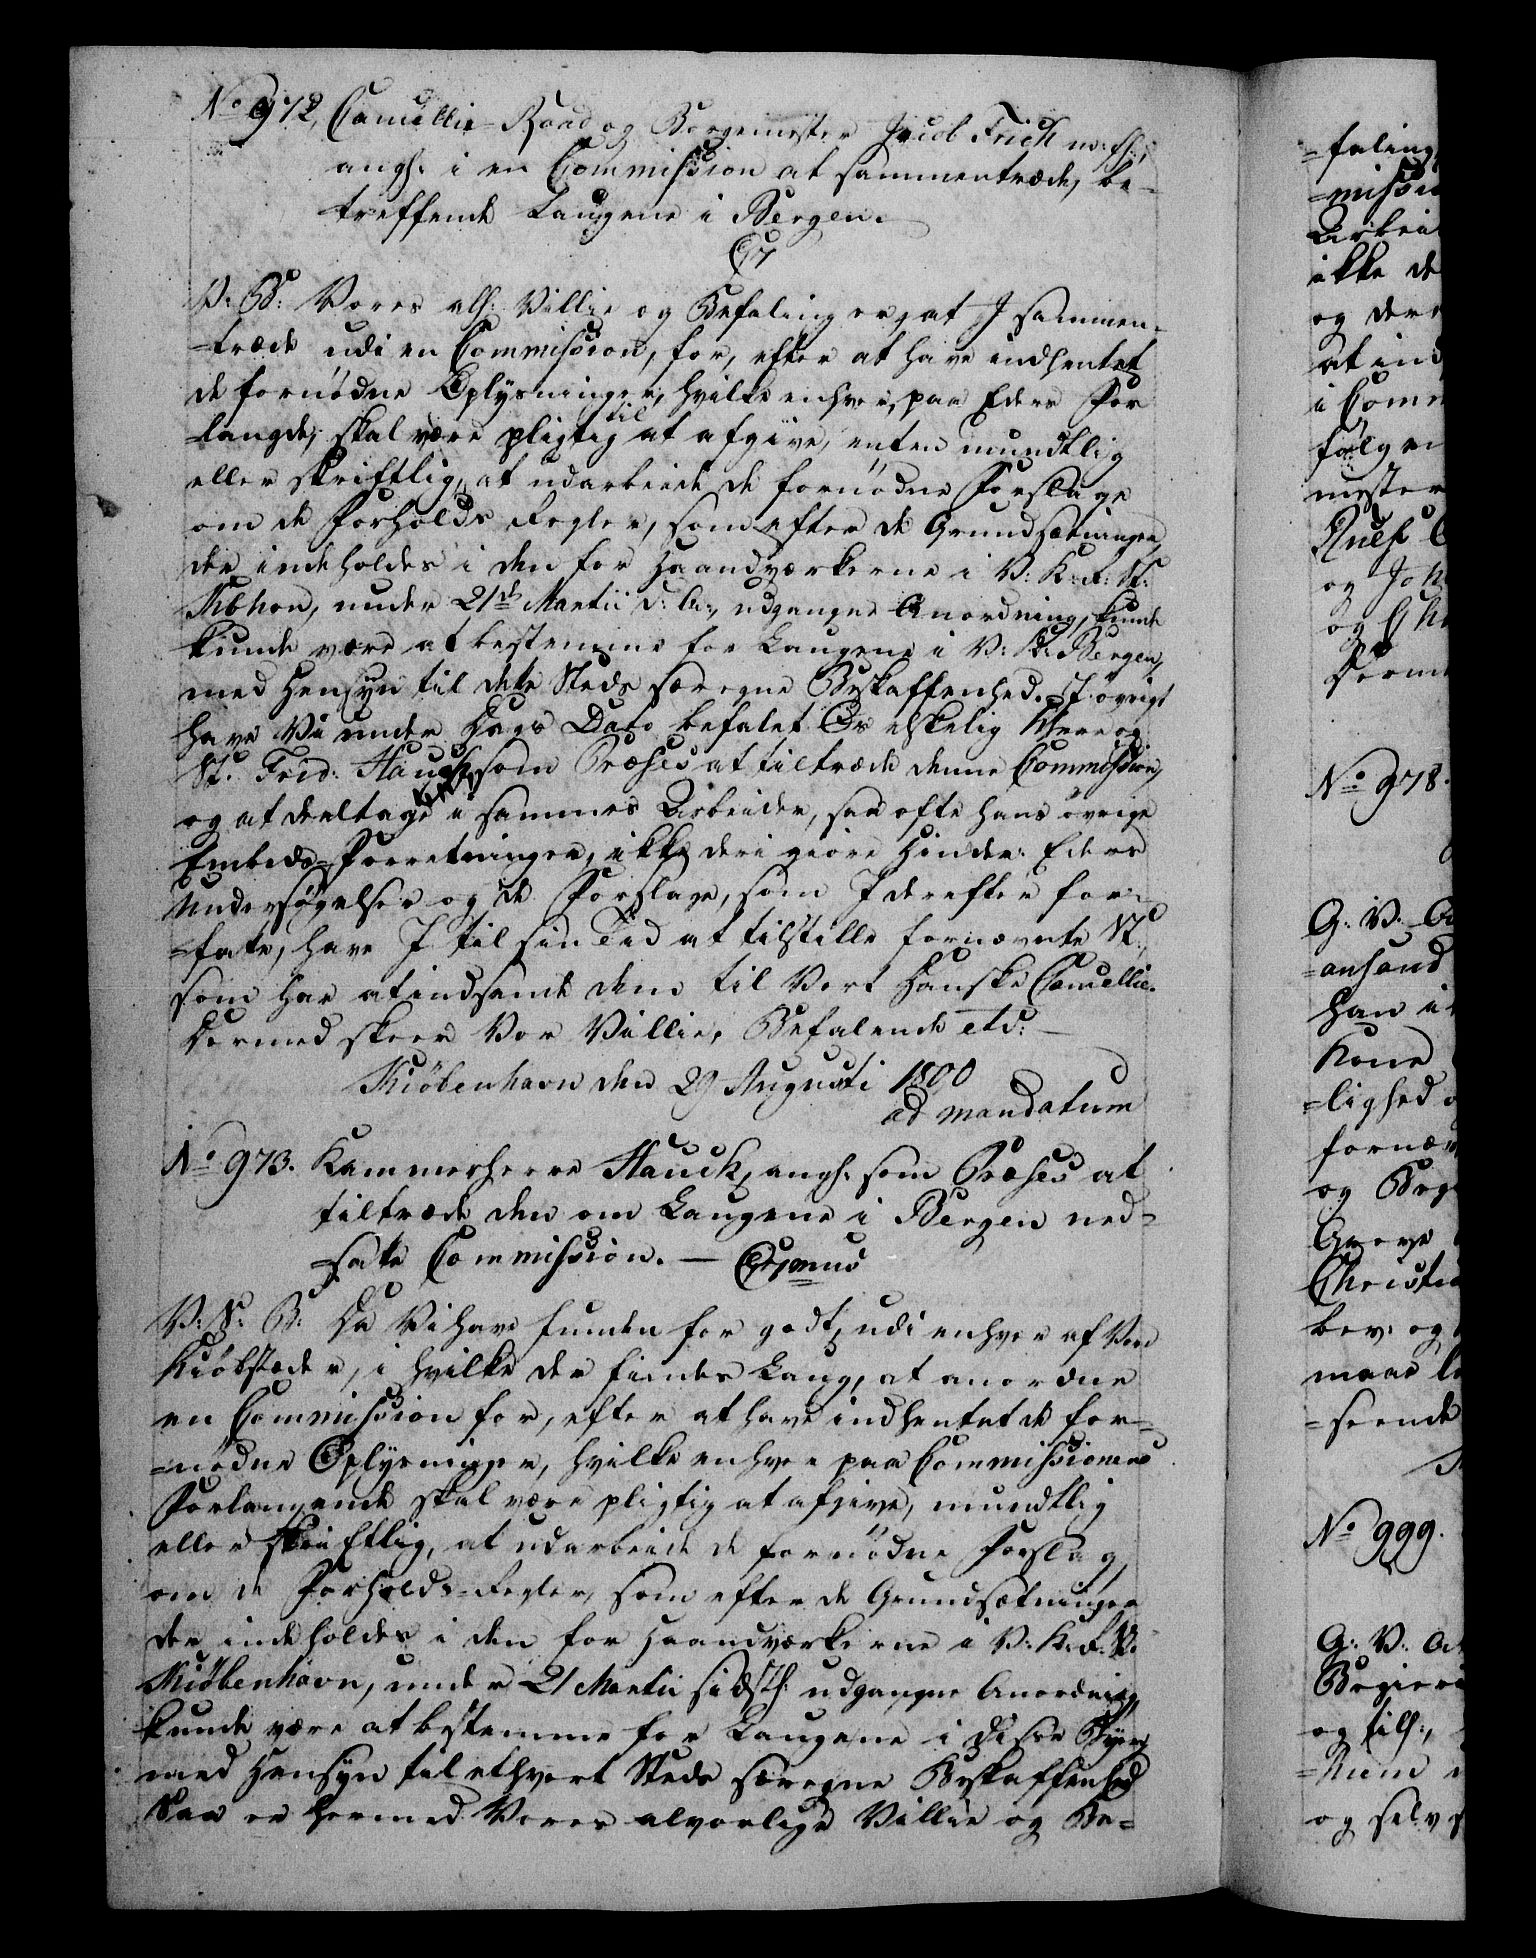 No 972, Cancellie-Raad og Borgemester Jacob Frich m: fl:,
angl: i en Commission at sammentræde, be-
treffende Laugene i Bergen.
C7
V: G: Vores all: Villie og Befaling er, at I sammen-
-træde udi en Commission, for, efter at have indhentet
de fornödne Oplysninger, hvilke enhver, paa Eders For
langde, skal være pligtig til at afgive, enten mundtlig
eller skriftlig, at udarbeide de fornödne Forslage
om de Forholds Regler, som efter de Grundsætninger,
der indeholdes i den for Haandværkerne i V: K: R: St:
Kbhvn, under 21de Martii d: A:, udgangne Anordning, kunde
kunde være at bestemme for Laugene i V: K: Bergen,
med Hensyn til dette Steds særegne Beskaffenhed. I övrigt
have Vi under Dags Dato befalet Os elskelig Herre og
St: Frid: Hauch, som Præses at tiltræde denne Commission,
og at deeltage i sammes Arbeider, saa ofte hans övrige
Embeds-Forretninger, ikke deri giöre Hinder. Eders
Undersögelser og de Forslage, som I derefter for-
-fatte, have I til sin Tid at tilstille fornævnte St:,
som har at indsende dem til Vort Danske Cancellie.
Dermed skeer Vor Villie, Befalende etc:
Kiöbenhavn den 29 Augusti 1800
ad mandatum
No 973. Kammerherre Hauch, angl: som Præses at
tiltræde den om Laugene i Bergen ned-
satte Commission. —
V: S: B: Da Vi have funden for godt, udi enhver af Vore
Kiöbstæder, i hvilke der findes Laug, at anordne
en Commission for, efter at have indhentet de for-
-nödne Oplysninger, hvilke enhver paa Commissionens
Forlangende skal være pligtig at afgive, mundtlig
eller skriftlig, at udarbeide de fornödne Forslag,
om de Forholds-Regler, som efter de Grundsætninger
der indeholdes i den for Haandværkerne i V: K: R: St:
Kiöbenhavn, under 21 Martii sidstl: udgangne Anordning,
kunde være at bestemme for Laugene i disse Byer,
med Hensyn til ethvert Steds særegne Beskaffenhed
Saa er hermed Vores alvorlige Villie og Be-
-faling,
ikke de
og der
at ind
i Comm
fölgen
mester
og
No 978.
G: V:
han i
Kone
-lighed
fornæ
og
Christi
bev: og
maae
-seende
No 999.
G: V:
og till:,
og selv